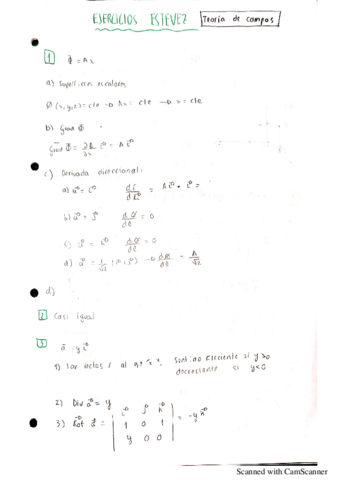 EJERCICIOS ESTEVEZ Teoría de campos
1 Φ = Ax
a) Superficies escalares
Ø (x,y,z) = cte → Ax = cte → x = cte
b) Grad Φ
Grad Φ = ∂A/∂x i = A i
c) Derivada direccional:
a) u = i dØ/dl = A i · i =
b) u = j dØ/dl = 0
c) u = k dØ/dl = 0
d) u = 1/√2 (i+j) → dØ/dl = A/√2
d)
2 Casi igual
3 a = y i
1) Son rectas // al eje "x". Sentido creciente si y>0
decreciente si y<0
2) Div a = y
i j k
3) Rot a = 1 0 1 = -y k
y 0 0
Scanned with CamScanner